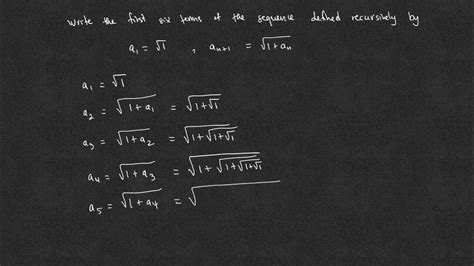 write the first six terms of the sequence defined recursively by
a₁ = √1 , aₙ₊₁ = √(1+aₙ)
a₁ = √1
a₂ = √(1+a₁) = √(1+√1)
a₃ = √(1+a₂) = √(1+√(1+√1))
a₄ = √(1+a₃) = √(1+√(1+√(1+√1)))
a₅ = √(1+a₄) = √